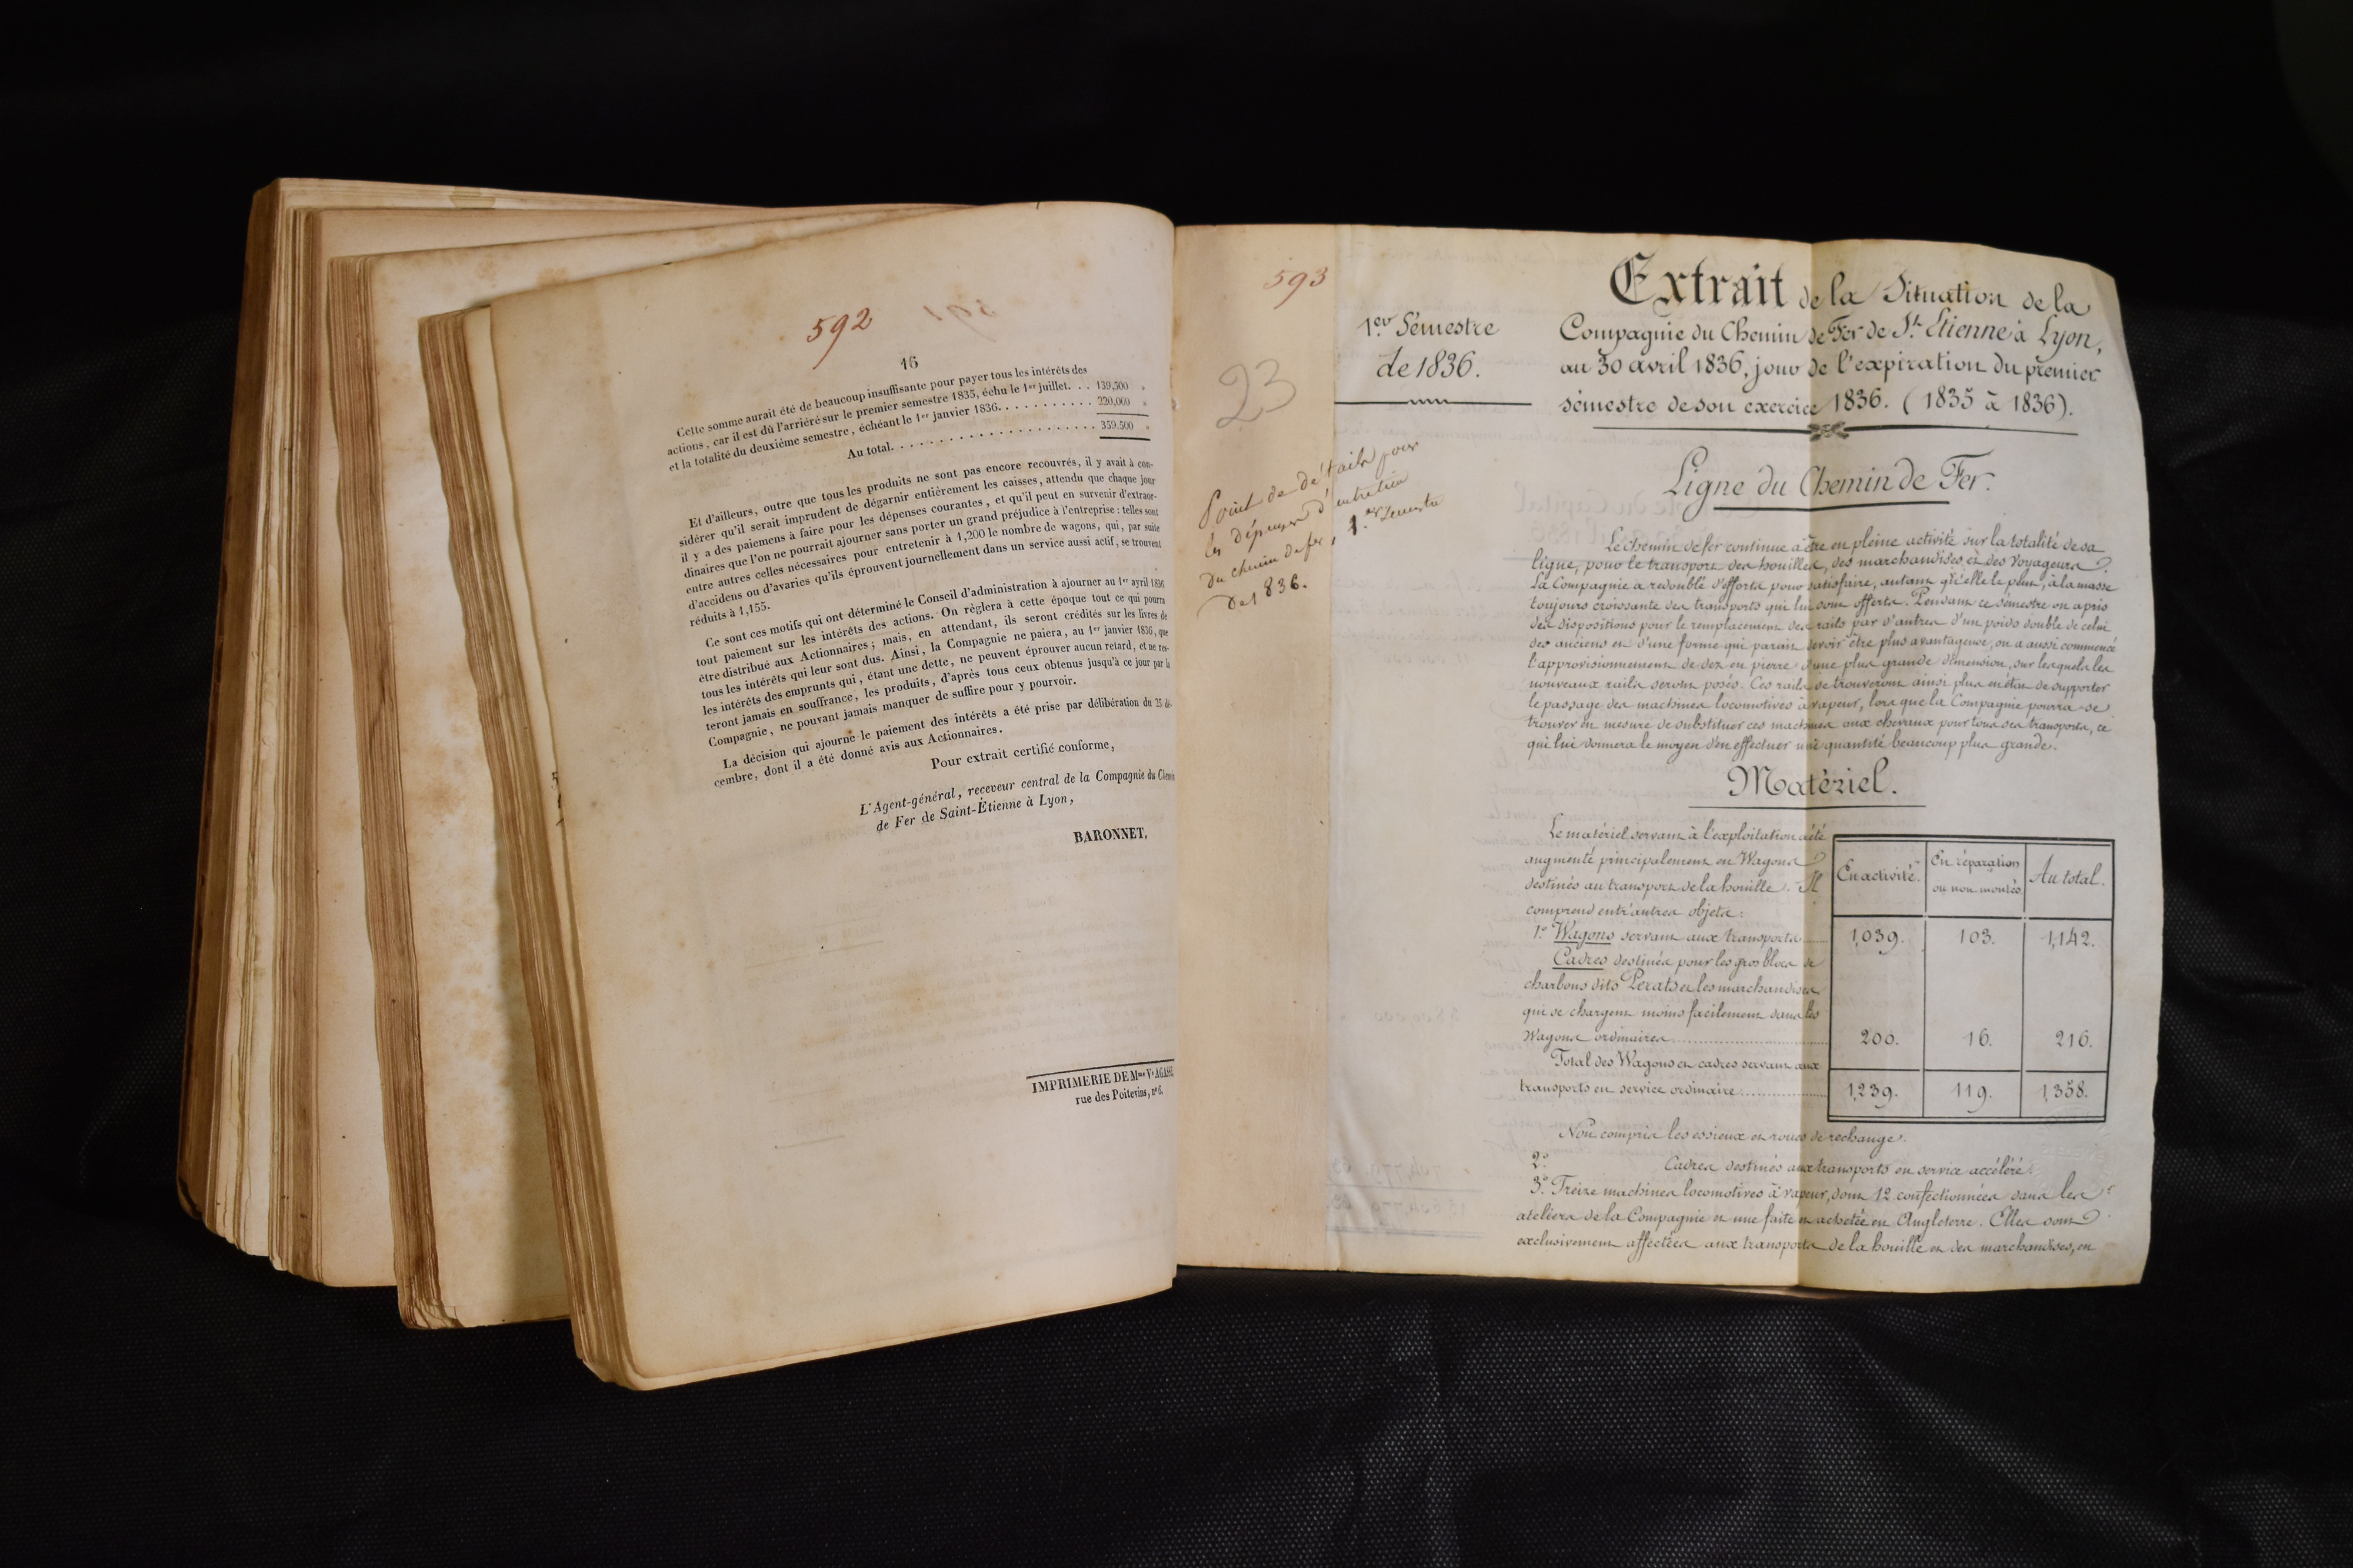 592
16
Cette somme aurait été de beaucoup insuffisante pour payer tous les intérêts des
actions, car il est dû l'arriéré sur le premier semestre 1835, échu le 1er juillet. . . 139,500 »
et la totalité du deuxième semestre, échéant le 1er janvier 1836. . . . . . . . . . . 220,000 »
Au total. . . . . . . . . . . . . . . . . . . . . . . 359.500 »
Et d'ailleurs, outre que tous les produits ne sont pas encore recouvrés, il y avait à con-
sidérer qu'il serait imprudent de dégarnir entièrement les caisses, attendu que chaque jour
il y a des paiemens à faire pour les dépenses courantes, et qu'il peut en survenir d'extraor-
dinaires que l'on ne pourrait ajourner sans porter un grand préjudice à l'entreprise : telles sont
entre autres celles nécessaires pour entretenir à 1,200 le nombre de wagons, qui, par suite
d'accidens ou d'avaries qu'ils éprouvent journellement dans un service aussi actif, se trouvent
réduits à 1,155.
Ce sont ces motifs qui ont déterminé le Conseil d'administration à ajourner au 1er avril 1836
tout paiement sur les intérêts des actions. On règlera à cette époque tout ce qui pourra
être distribué aux Actionnaires ; mais, en attendant, ils seront crédités sur les livres de
tous les intérêts qui leur sont dus. Ainsi, la Compagnie ne paiera, au 1er janvier 1836, que
les intérêts des emprunts qui, étant une dette, ne peuvent éprouver aucun retard, et ne res-
teront jamais en souffrance, les produits, d'après tous ceux obtenus jusqu'à ce jour par la
Compagnie, ne pouvant jamais manquer de suffire pour y pourvoir.
La décision qui ajourne le paiement des intérêts a été prise par délibération du 25 dé-
cembre, dont il a été donné avis aux Actionnaires.
Pour extrait certifié conforme,
L'Agent-général, receveur central de la Compagnie du Chemin
de Fer de Saint-Étienne à Lyon,
BARONNET.
IMPRIMERIE DE Mme Ve AGASSE
rue des Poitevins, n° 6.
593
23
Point de détails pour
les dépenses d'entretien
du chemin de fer, 1.er Semestre
de 1836.
1.er Sémestre
de 1836.
Extrait de la Situation de la
Compagnie du Chemin de Fer de St. Etienne à Lyon,
au 30 avril 1836, jour de l'expiration du premier
sémestre de son exercice 1836. (1835 à 1836).
Ligne du Chemin de Fer.
Le chemin de fer continue à être en pleine activité sur la totalité de sa
ligne, pour le transport des houilles, des marchandises et des voyageurs.
La Compagnie a redoublé d'efforts pour satisfaire, autant qu'elle le peut, à la masse
toujours croissante des transports qui lui sont offerts. Pendant ce sémestre on a pris
des dispositions pour le remplacement des rails par d'autres d'un poids double de celui
des anciens et d'une forme qui parait devoir être plus avantageuse, on a aussi commencé
l'approvisionnement de dez en pierre d'une plus grande dimension, sur lesquels les
nouveaux rails seront posés. Ces rails se trouveront ainsi plus en état de supporter
le passage des machines locomotives à vapeur, lorsque la Compagnie pourra se
trouver en mesure de substituer ces machines aux chevaux pour tous ses transports, ce
qui lui donnera le moyen d'en effectuer une quantité beaucoup plus grande.
Matériel.
Le matériel servant à l'exploitation a été
augmenté principalement en Wagons
destinés au transport de la houille. Il
comprend entr'autres objets:
En activité. En réparation ou non montés Au total.
1.° Wagons servant aux transports 1,039. 103. 1,142.
Cadres destinés pour les gros blocs de
charbons dits Perats et les marchandises
qui se chargent moins facilement dans les
Wagons ordinaires 200. 16. 216.
Total des Wagons et cadres servant aux
transports en service ordinaire 1,239. 119. 1,358.
Non compris les essieux et roues de rechange.
2.° Cadres destinés aux transports en service accéléré.
3.° Treize machines locomotives à vapeur, dont 12 confectionnées dans les
ateliers de la Compagnie et une faite et achetée en Angleterre. Elles sont
exclusivement affectées aux transports de la houille et des marchandises, en